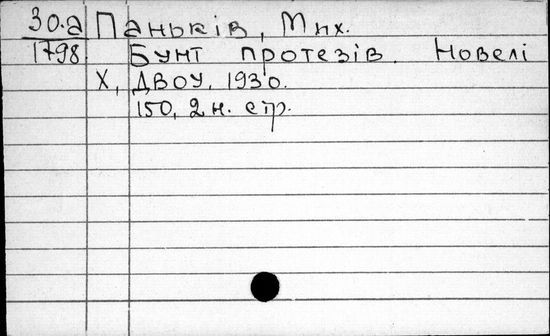 30.а Паньків, Мих.
1798 Бунт протезів. Новелі
Х, ДВОУ, 1930.
150, 2 н. стр.